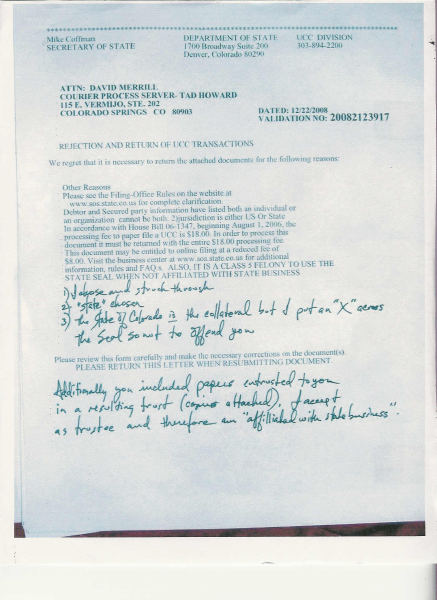 Mike Coffman DEPARTMENT OF STATE UCC DIVISION
SECRETARY OF STATE 1700 Broadway Suite 200 303-894-2200
Denver, Colorado 80290
ATTN: DAVID MERRILL
COURIER PROCESS SERVER- TAD HOWARD
115 E. VERMIJO, STE. 202
COLORADO SPRINGS CO 80903
DATED: 12/22/2008
VALIDATION NO: 20082123917
REJECTION AND RETURN OF UCC TRANSACTIONS
We regret that it is necessary to return the attached documents for the following reasons:
Other Reasons
Please see the Filing-Office Rules on the website at
www.sos.state.co.us for complete clarification.
Debtor and Secured party information have listed both an individual or
an organization cannot be both. 2)jurisdiction is either US Or State
In accordance with House Bill 06-1347, beginning August 1, 2006, the
processing fee to paper file a UCC is $18.00. In order to process this
document it must be returned with the entire $18.00 processing fee.
This document may be entitled to online filing at a reduced fee of
$8.00. Visit the business center at www.sos.state.co.us for additional
information, rules and FAQ s. ALSO, IT IS A CLASS 5 FELONY TO USE THE
STATE SEAL WHEN NOT AFFILIATED WITH STATE BUSINESS
1) I chose and struck through
2) "State" chosen
3) the State of Colorado is the collateral but I put an "X" across
the Seal so not to offend you
Please review this form carefully and make the necessary corrections on the document(s).
PLEASE RETURN THIS LETTER WHEN RESUBMITTING DOCUMENT.
Additionally you included papers entrusted to you
in a resulting trust (copies attached). I accept
as trustee and therefore am "affiliated with state business".